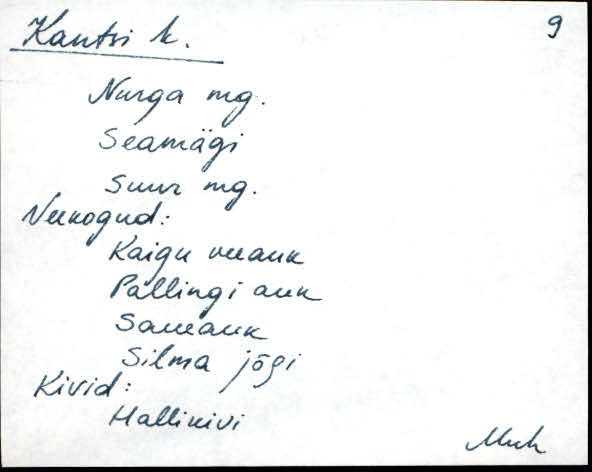 Kantsi k. 9
Nurga mg.
Seamägi
Suur mg.
Veekogud:
Kaigu veeauk
Pallingi auk
Saueauk
Silma jõgi
Kivid:
Hallikivi
Muh